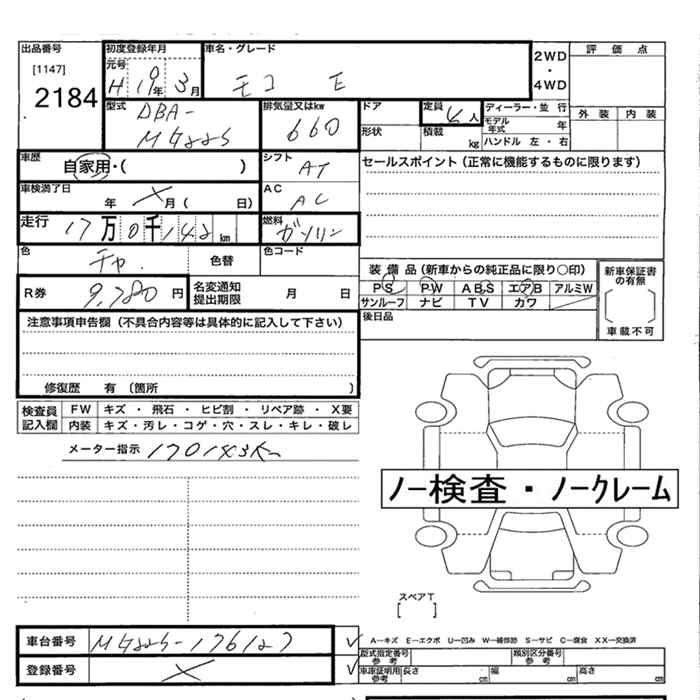 出品番号
[1147]
2184
初度登録年月
元号
H 19年 3月
車名・グレード
モコ E
2WD
・
4WD
評価点
外装 内装
型式
DBA-
MG22S
排気量又はkw
660
ドア
形状
定員
4人
積載 kg
ディーラー・並行
モデル年式 年
ハンドル 左・右
車歴
自家用・( )
シフト
AT
セールスポイント (正常に機能するものに限ります)
車検満了日
年 月 ( 日)
AC
AC
走行
17万0千142km
燃料
ガソリン
色
チャ.
色替
色コード
R券
9,780円
名変通知
提出期限
月 日
装備品 (新車からの純正品に限り○印)
PS PW ABS エアB アルミW
サンルーフ ナビ TV カワ
後日品
新車保証書
の有無
車載不可
注意事項申告欄 (不具合内容等は具体的に記入して下さい)
修復歴 有 (箇所 )
検査員
記入欄
FW キズ・飛石・ヒビ割・リペア跡・X要
内装 キズ・汚レ・コゲ・穴・スレ・キレ・破レ
メーター指示 170143Km
ノー検査・ノークレーム
スペアT
[ ]
車台番号
MG22S-176127
登録番号
A―キズ E―エクボ U―凹み W―補修跡 S―サビ C―腐食 XX―交換済
型式指定番号
参考
類別区分番号
参考
車庫証明用
参考
長さ cm 幅 cm 高さ cm